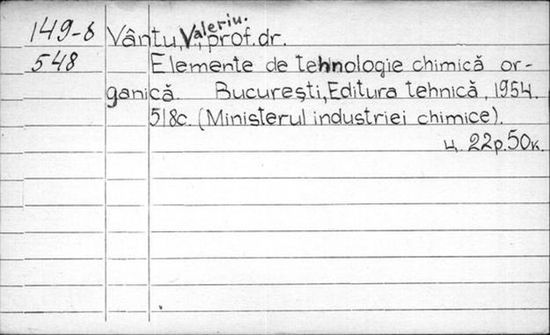 149-8 Vântu, V., Valeriu. prof. dr.
548 Elemente de tehnologie chimică or-
ganică. București, Editura tehnică, 1954.
518c. (Ministerul industriei chimice).
ц. 22р.50к.